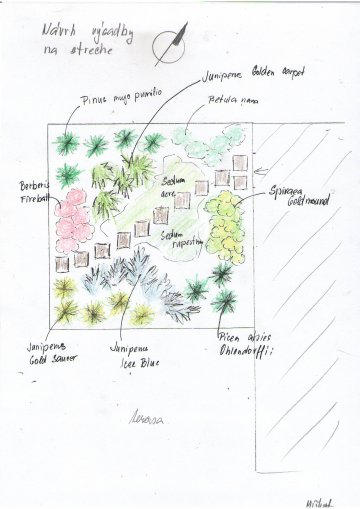 Návrh výsadby
na streche
Juniperus Golden carpet
Pinus mugo pumilio
Betula nana
Sedum
acre
Berberis
Fireball
Spiraea
Goldmound
Sedum
rupestre
Juniperus
Gold Saucer
Juniperus
Icee Blue
Picea abies
Ohlendorffii
terasa